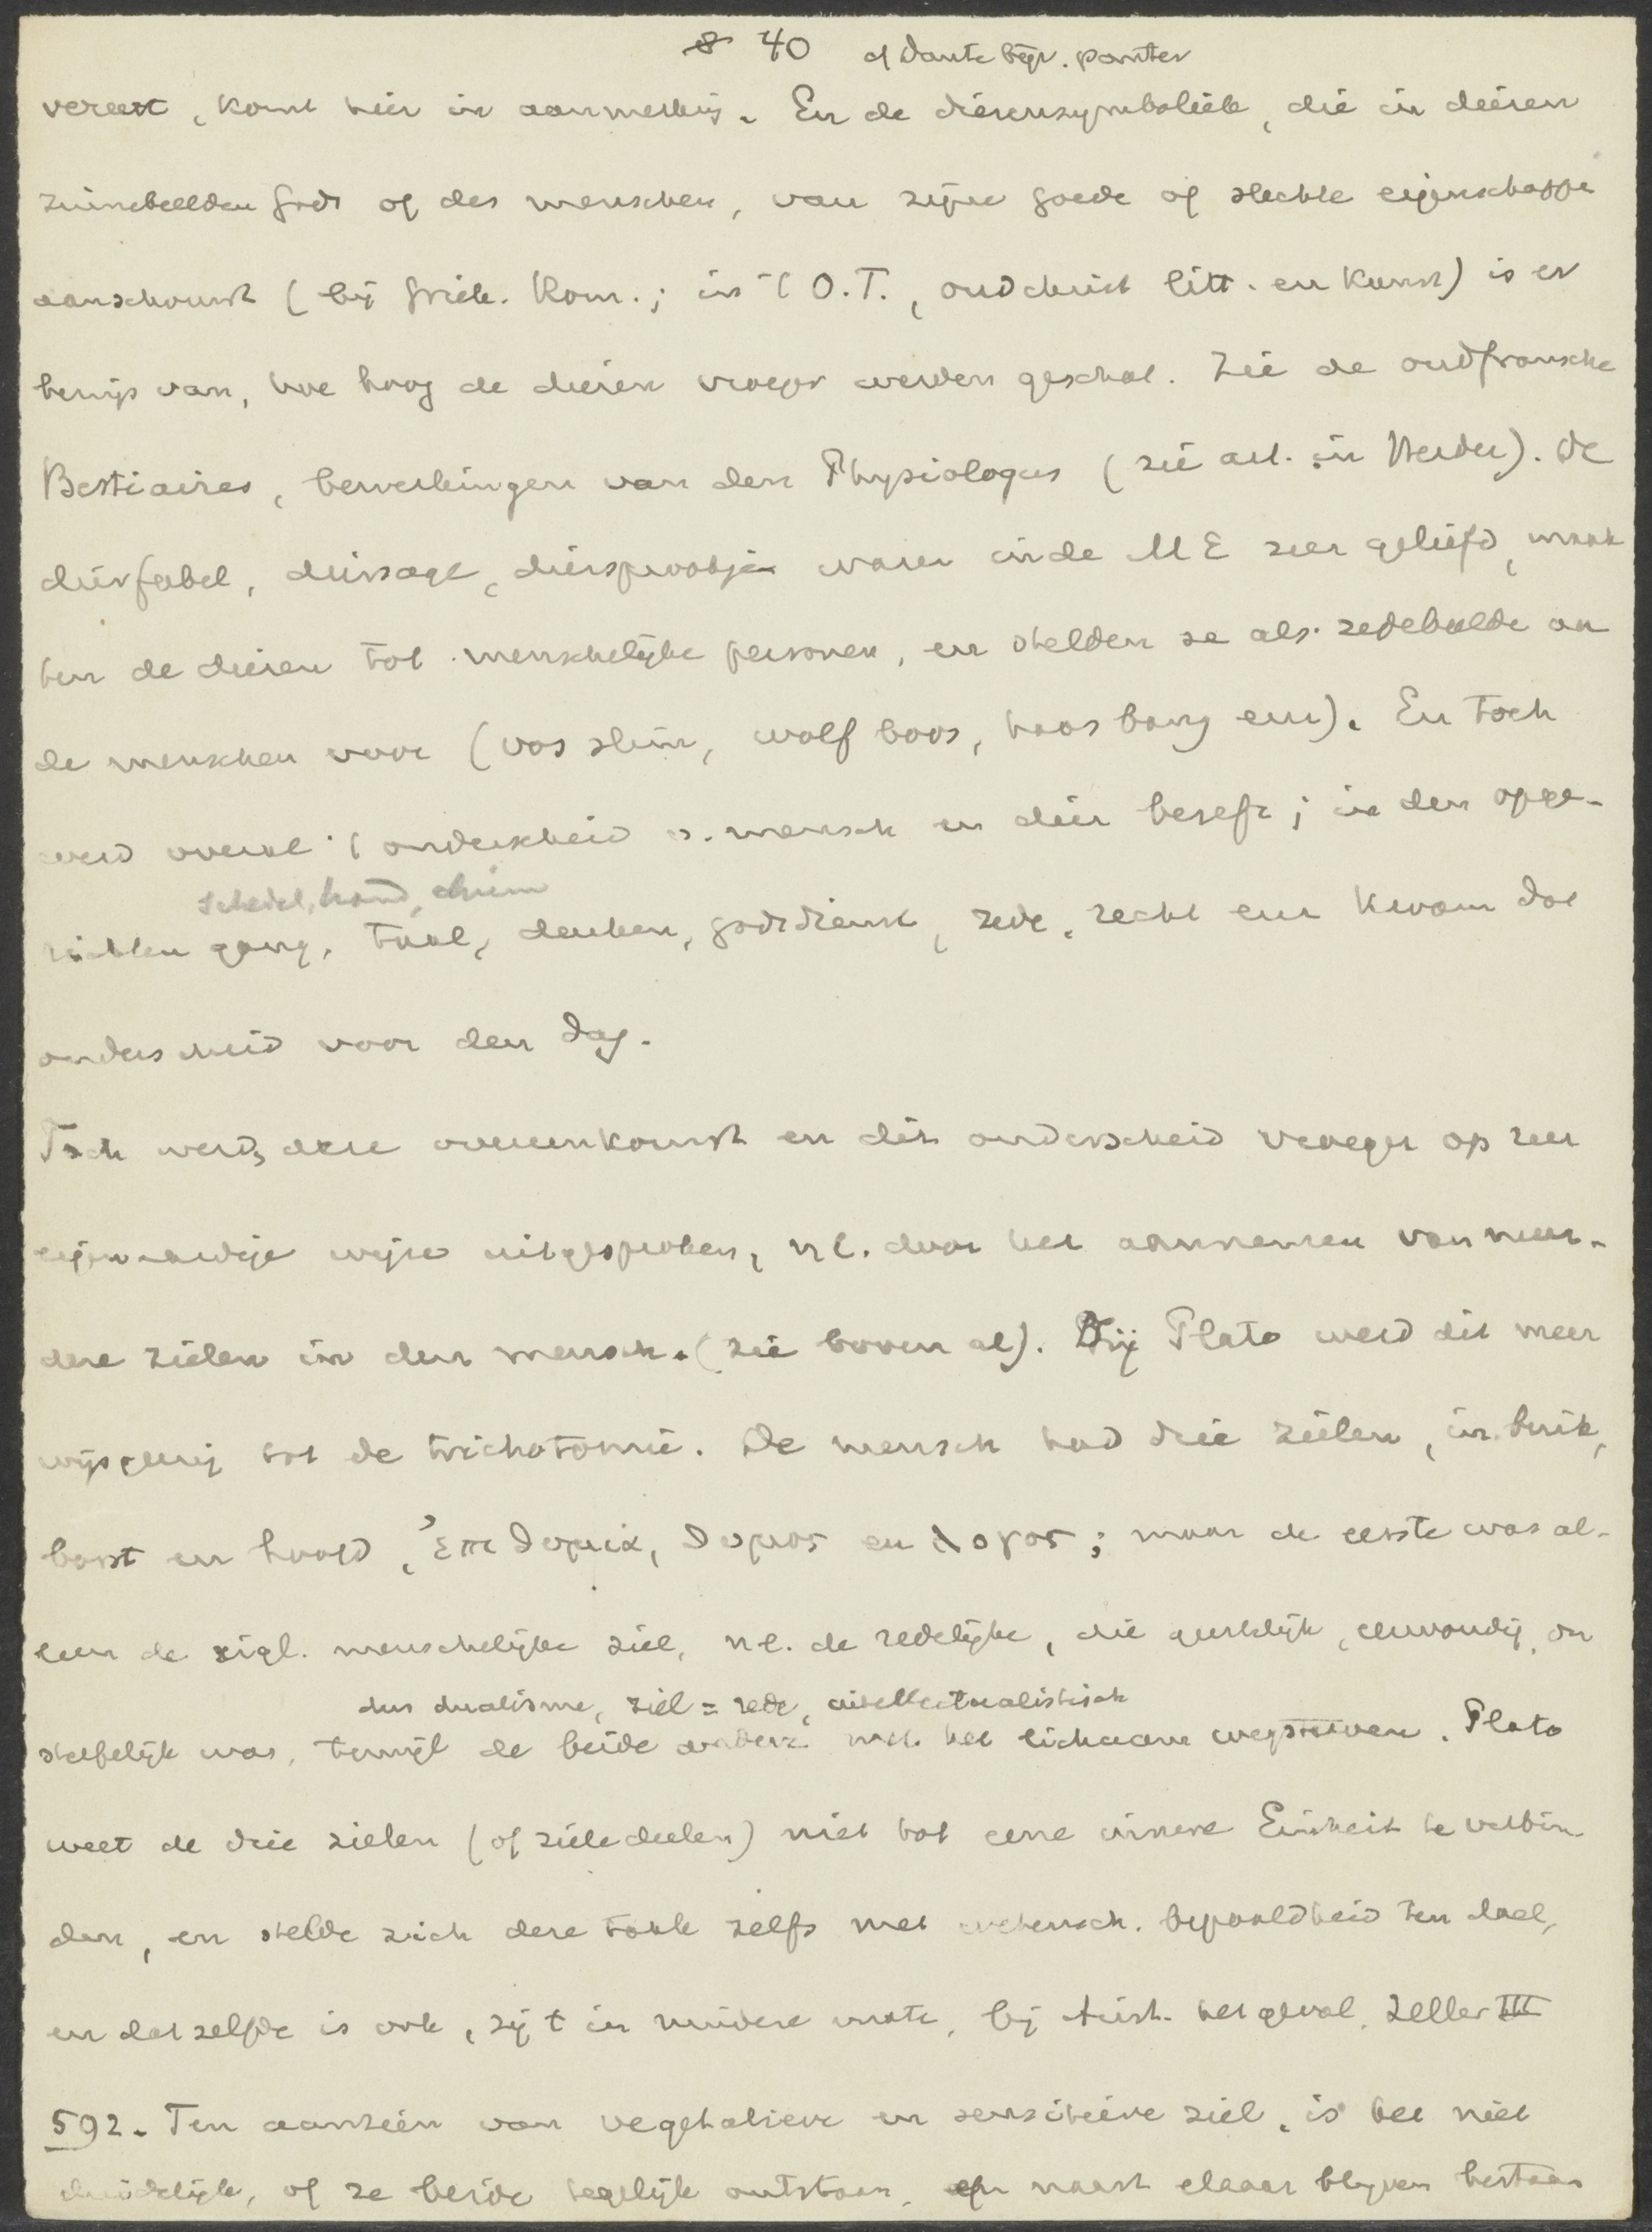 8 40 cf Dante bijv. panter
vereert, komt hier in aanmerking. En de dierensymboliek, die in dieren
zinnebeelden Gods of des menschen, van zijne goede of slechte eigenschappen
aanschouwt (bij Griek. Rom.; in 't O.T., oudchrist litt. en kunst) is er
bewijs van, hoe hoog de dieren vroeger werden geschat. Zie de oudfransche
Bestiaires, bewerkingen van den Physiologus (zie art. in Herder). De
dierfabel, diersage, diersprookje waren in de ME zeer geliefd, maak
ten de dieren tot menschelijke personen, en stelden ze als zedebeelde aan
de menschen voor (vos slim, wolf boos, haas bang enz). En toch
werd overal 't onderscheid v. mensch en dier beseft; in den opge-
schedel, hand,
richten gang, taal, denken, godsdienst, zede, recht enz kwam dat
onderscheid voor den dag.
Toch werd deze overeenkomst en dit onderscheid vroeger op zeer
eigenaardige wijze uitgesproken, nl. door het aannemen van meer-
dere zielen in den mensch. (zie boven al). Bij Plato werd dit meer
wijsgeerig tot de trichotomie. De mensch had drie zielen, in buik,
borst en hoofd, ἐπιθυμια, θυμος en λογος; maar de eerste was al-
leen de eigl. menschelijke ziel, nl. de redelijke, die geestelijk, eenvoudig, on
dus dualisme, ziel = rede, intellectualistisch
sterfelijk was, terwijl de beide andere met het lichaam wegstierven. Plato
weet de drie zielen (of zieledeelen) niet tot eene innere Einheit te verbin-
den, en stelde zich deze taak zelfs met wetensch. bepaaldheid ten doel,
en datzelfde is ook, zij 't in mindere mate, bij Arist. het geval. Zeller III
592. Ten aanzien van vegetatieve en sensitieve ziel, is het niet
duidelijk, of ze beide tegelijk ontstaan, en naast elkaar blijven bestaan